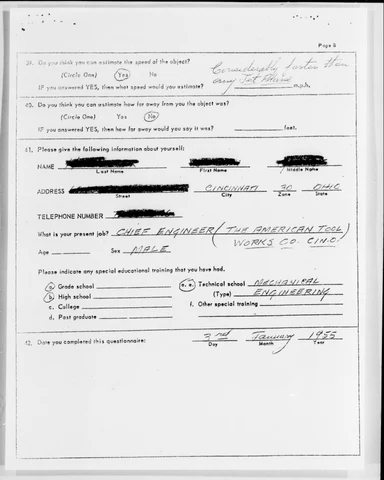 Page 8
39. Do you think you can estimate the speed of the object?
(Circle One) Yes No
Considerably faster than
any Jet Plane
IF you answered YES, then what speed would you estimate? m.p.h.
40. Do you think you can estimate how far away from you the object was?
(Circle One) Yes No
IF you answered YES, then how far away would you say it was? feet.
41. Please give the following information about yourself:
NAME
Last Name First Name Middle Name
ADDRESS CINCINNATI 30 OHIO
Street City Zone State
TELEPHONE NUMBER
What is your present job? CHIEF ENGINEER (THE AMERICAN TOOL
WORKS CO. CINC.)
Age Sex MALE
Please indicate any special educational training that you have had.
a. Grade school e. Technical school MECHANICAL
b. High school (Type) ENGINEERING
c. College f. Other special training
d. Post graduate
42. Date you completed this questionnaire: 3rd January 1955
Day Month Year